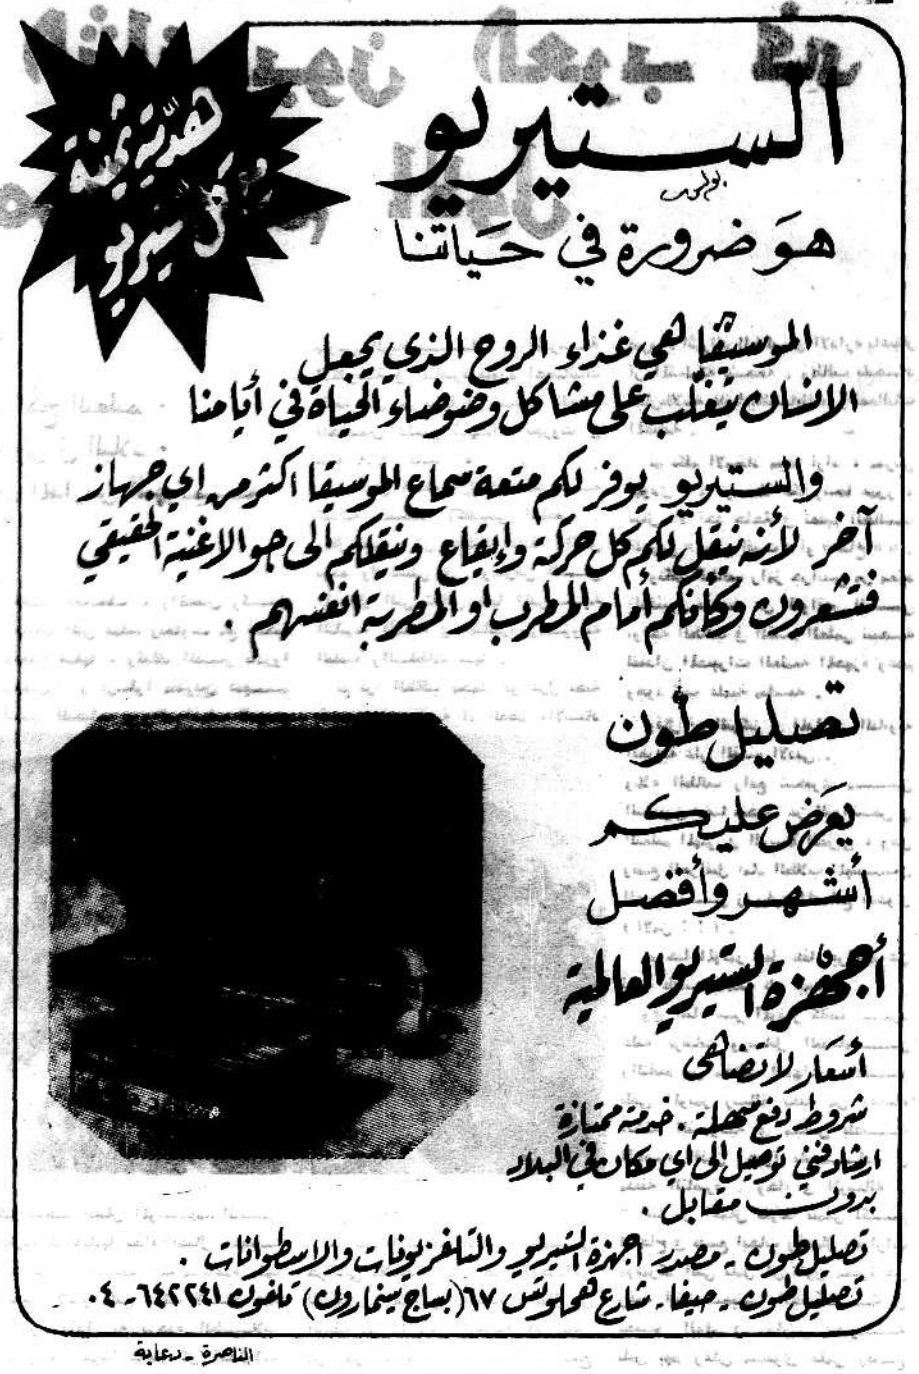 هديّة ثمينة
مع كل ستيريو
الستيريو
هوَ ضرورة في حَياتنا
الموسيقا هي غذاء الروح الذي يجعل
الانسان يتغلب على مشاكل وضوضاء الحياة في أيامنا
والستيريو يوفر لكم متعة سماع الموسيقا اكثر من اي جهاز
آخر لأنه ينقل لكم كل حركة وإيقاع وينقلكم الى جو الاغنية الحقيقي
فتشعرون وكأنكم أمام المطرب او المطربة انفسهم .
تصليل طون
يعَرض عليكم
أشهر وأفضل
أجهزة الستيريو العالمية
أسعَار لا تضاهى
شروط دفع سهلة . خدمة ممتازة
ارشاد فني توصيل الى اي مكان في البلاد
بدون مقابل .
تصليل طون - مصدر اجهزة الستيريو والتلفزيونات والاسطوانات .
تصليل طون - حيفا - شارع هحلوتس ٦٧ (بساج سينما رون) تلفون ٦٤٢٢٤١ - ٠٤
الناصرة - دعاية